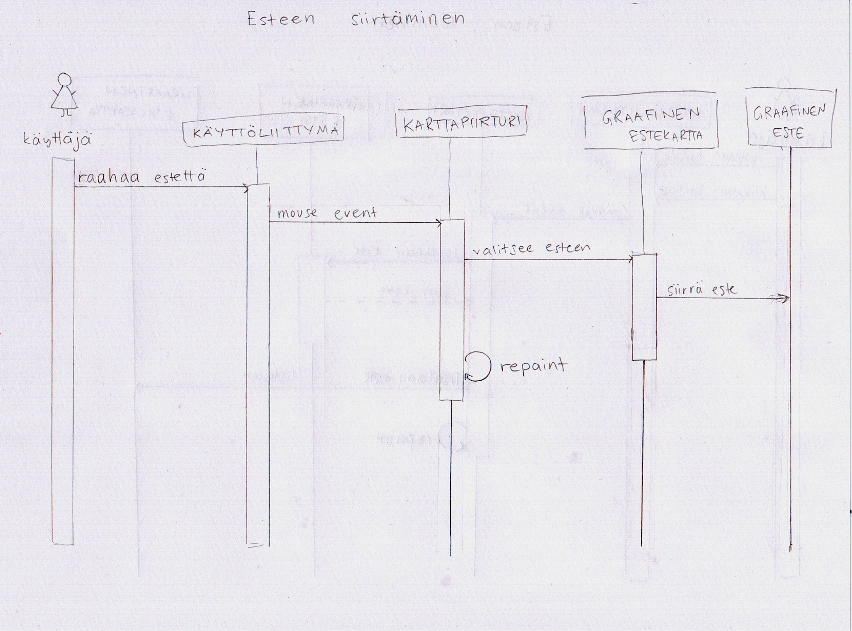 Esteen siirtäminen
käyttäjä
KÄYTTÖLIITTYMÄ
KARTTAPIIRTURI
GRAAFINEN
ESTEKARTTA
GRAAFINEN
ESTE
raahaa estettä
mouse event
valitsee esteen
siirrä este
repaint